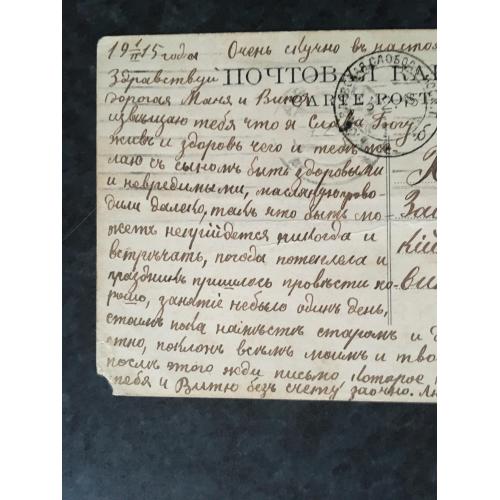 19 1/II 15 года Очень скучно въ настоя
Здравствуй ПОЧТОВАЯ КА
дорогая Маня и Витя CARTE POST
извѣщаю тебя что я Слава Богу
живъ и здоровъ чего и тебѣ же
лаю съ сыномъ быть здоровыми
и невредимыми, масляную прово
дили далеко, такъ что быть мо
жетъ непрійдется никогда и
встрѣчать, погода потеплела и
праздникъ пришлось провѣсти хо
рошо, занятіе небыло одинъ день,
стоимъ пока на мѣстѣ старомъ и
поклонъ всѣмъ моимъ и тво
послѣ этого жди письмо которое
тебя и Витю безъ счету заочно.